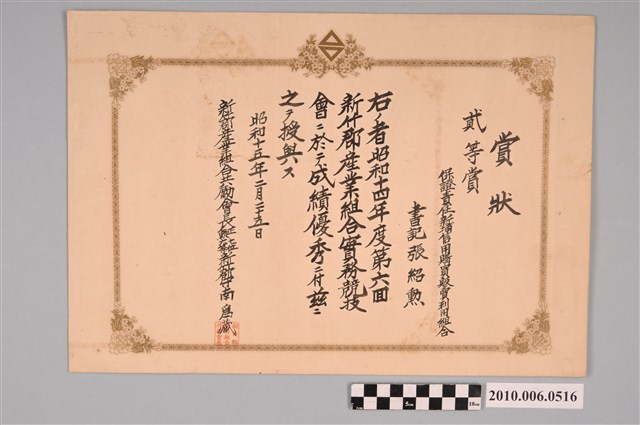 賞狀
貳等賞
保證責任新埔信用購買販賣利用組合
書記 張紹勲
右ノ者昭和十四年度第六回
新竹郡産業組合實務競技
會ニ於テ成績優秀ニ付茲ニ
之ヲ授與ス
昭和十五年二月二十五日
2010.006.0516